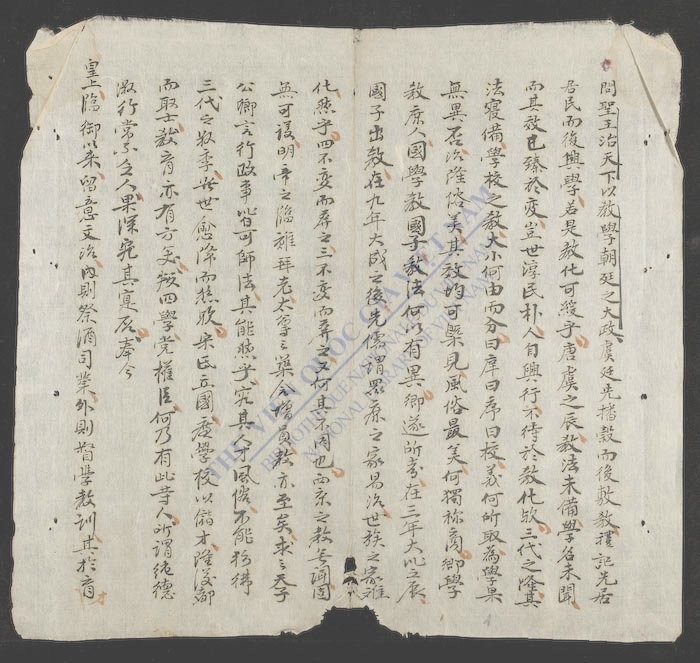 問聖王治天下以教學朝廷之大政虞廷先播穀而後敷教禮記先居
居民而後興學若是教化可緩乎唐虞之辰教法未備學名未聞
而其效已臻於變豈世淳民朴人自興行不待於教化歟三代之隆其
法寖備學校之教大小何由而分曰庠曰序曰校義何所取為學果
無異否治隆俗美其效均可槩見風俗最美何獨称商鄉學
教庶人國學教國子教法何以有異鄉遂所考在三年大比之辰
國子出教在九年大成之後先儒謂眾庶之家易治世族之家難
化然乎四不變而屏之三不變而弃之又何其不同也西京之教無聞固
無可議明帝之臨雍拜老太學之藥令增員教亦至矣求之天子
公卿言行政事皆可師法其能然乎究其人才風俗不能彷彿
三代之教季世愈降而愈歟宋氏立國慶學校以儲才隆後都
而取士教育亦有方矣攷四學党權臣何乃有此等人所謂純德
淑行常不乏人果深究其寔否奉今
皇上臨御以来留意文治內則祭酒司業外則督學教訓其於育
才
THƯ VIỆN QUỐC GIA VIỆT NAM
BIBLIOTHÈQUE NATIONALE DU VIETNAM
NATIONAL LIBRARY OF VIETNAM